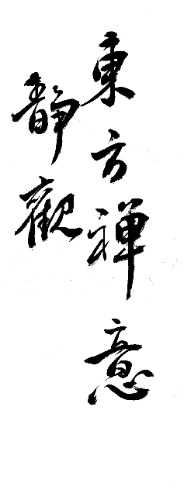 東方禪意
靜觀